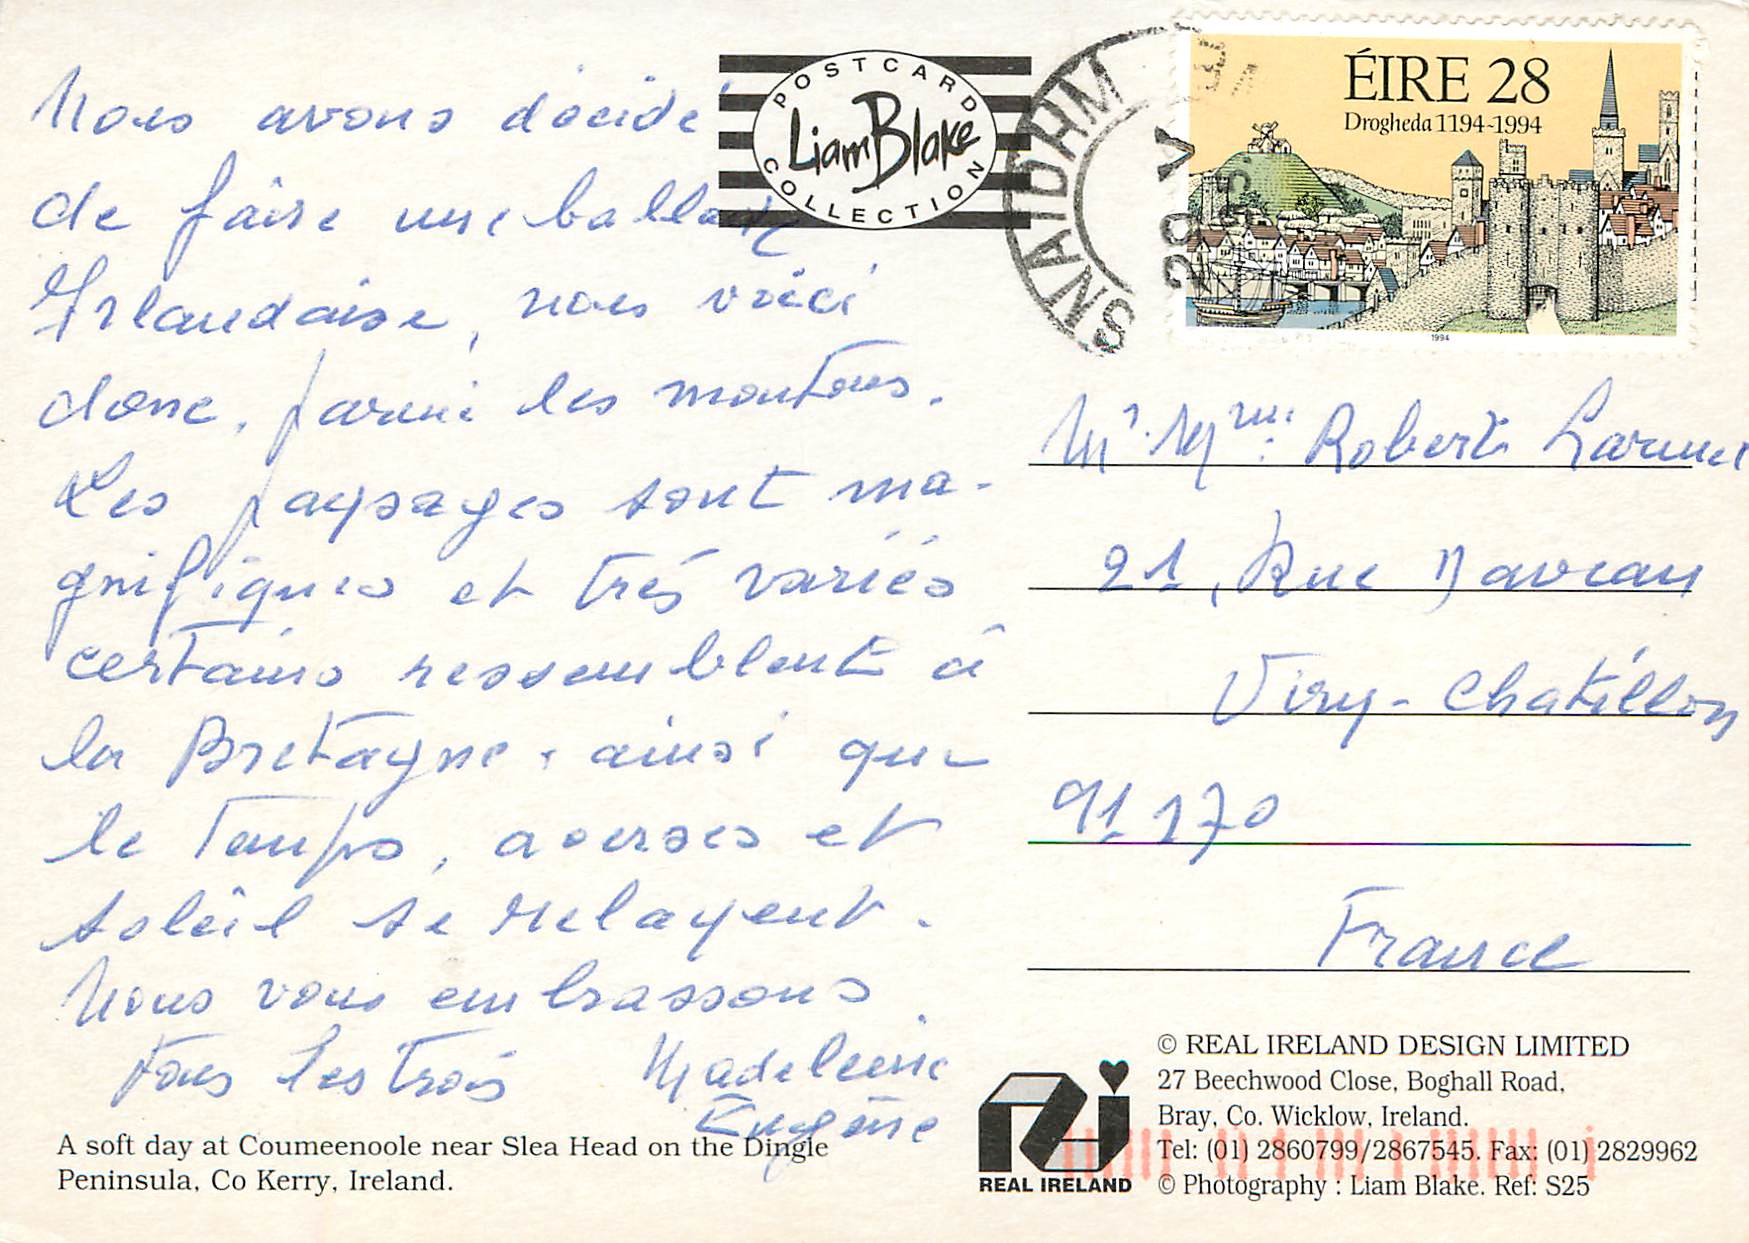 Nous avons décidé
de faire une ballade
Irlandaise, nous voici
donc, parmi les moutons.
Les paysages sont ma-
gnifiques et très variés
certains ressemblent à
la Bretagne, ainsi que
le temps, averses et
soleil se relayent.
Nous vous embrassons
tous les trois Madeleine
Eugène
A soft day at Coumeenoole near Slea Head on the Dingle
Peninsula, Co Kerry, Ireland.
POSTCARD
Liam Blake
COLLECTION
SNAIDHM
20 V
ÉIRE 28
Drogheda 1194-1994
1994
Mr. Mme: Robert
21, Rue
Viry-Chatillon
91170
France
REAL IRELAND
© REAL IRELAND DESIGN LIMITED
27 Beechwood Close, Boghall Road,
Bray, Co. Wicklow, Ireland.
Tel: (01) 2860799/2867545. Fax: (01) 2829962
© Photography : Liam Blake. Ref: S25